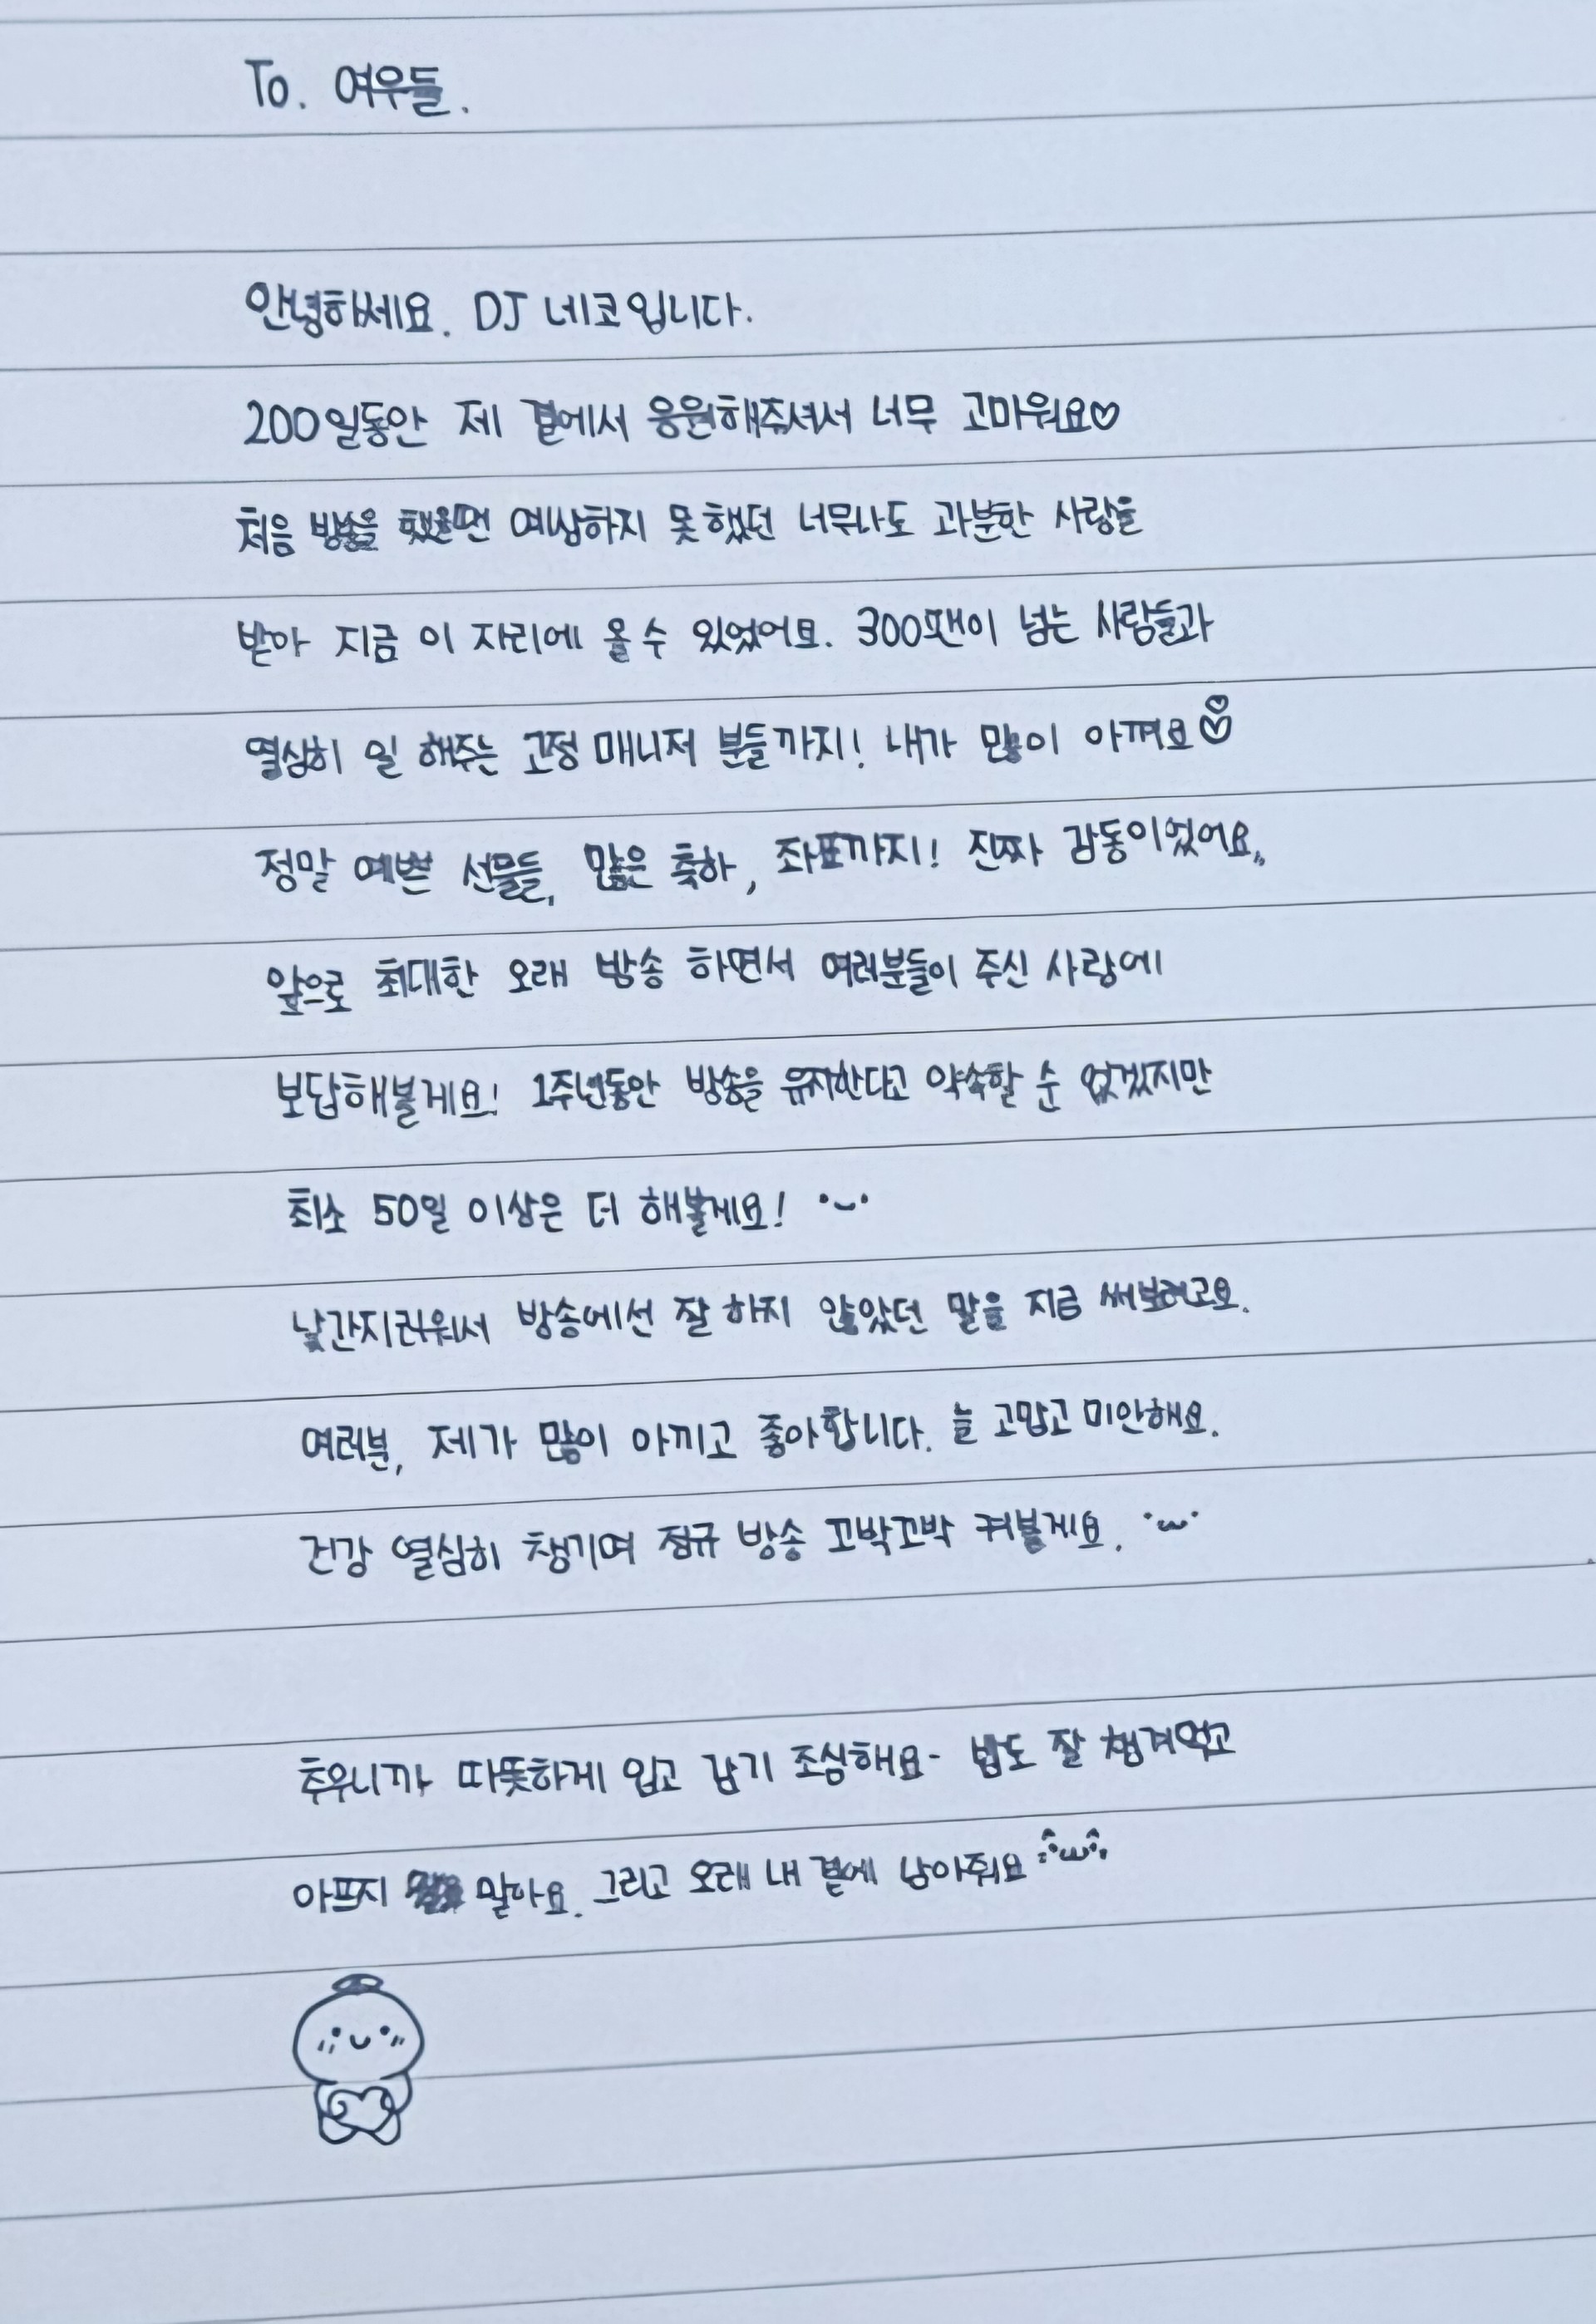 To. 여우들.
안녕하세요. DJ 네코입니다.
200일동안 제 곁에서 응원해주셔서 너무 고마워요♡
처음 방송을 했을땐 예상하지 못했던 너무나도 과분한 사랑을
받아 지금 이 자리에 올 수 있었어요. 300팬이 넘는 사람들과
열심히 일 해주는 고정 매니저 분들까지! 내가 많이 아껴요
정말 예쁜 선물들, 많은 축하, 좌표까지! 진짜 감동이었어요..
앞으로 최대한 오래 방송 하면서 여러분들이 주신 사랑에
보답해볼게요! 1주년동안 방송을 유지한다고 약속할 순 없겠지만
최소 50일 이상은 더 해볼게요! •⌣•
낯간지러워서 방송에선 잘 하지 않았던 말을 지금 써보려고요.
여러분, 제가 많이 아끼고 좋아합니다. 늘 고맙고 미안해요.
건강 열심히 챙기며 정규 방송 꼬박꼬박 켜볼게요. •ω•
추우니까 따뜻하게 입고 감기 조심해요- 밥도 잘 챙겨먹고
아프지 말아요. 그리고 오래 내 곁에 남아줘요